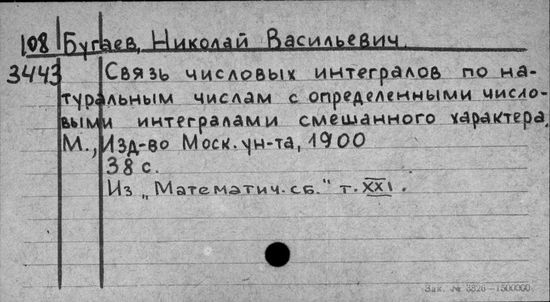 108 Бугаев, Николай Васильевич.
3443 Связь числовых интегралов по на-
туральным числам с определенными число-
выми интегралами смешанного характера.
М., Изд-во Моск. ун-та, 1900
38 с.
Из „Математич. сб." т. XXI.
Зак. № 3826—1500000